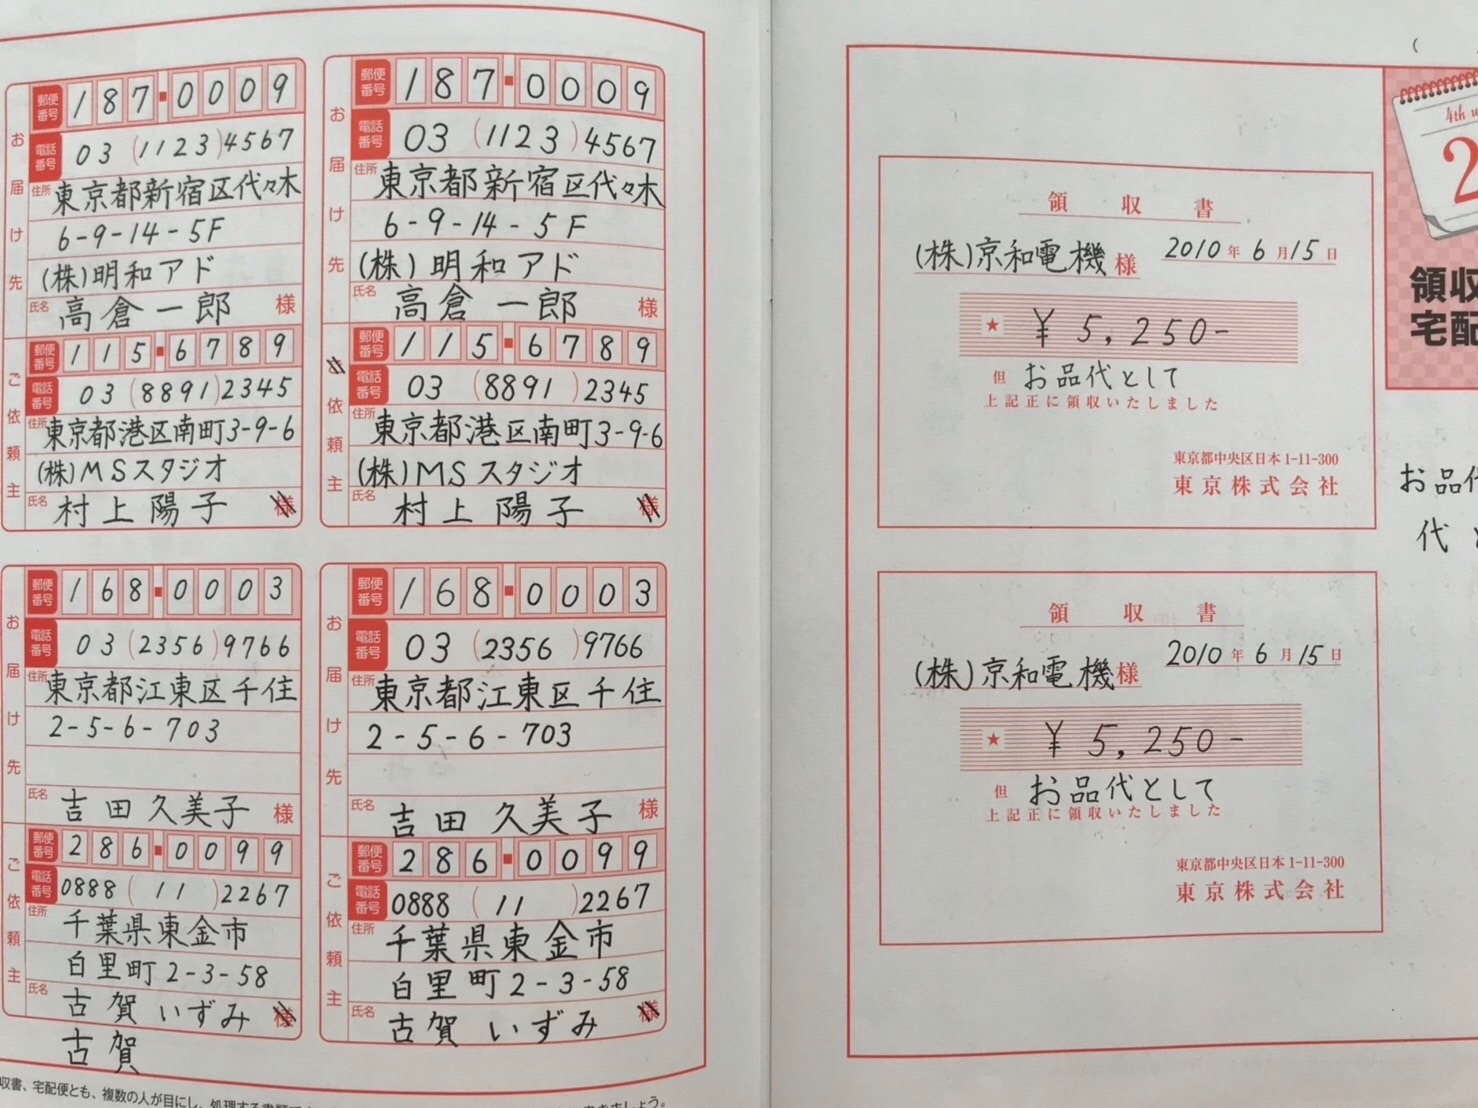 お届け先
郵便番号 187-0009
電話番号 03(1123)4567
住所 東京都新宿区代々木
6-9-14-5F
(株)明和アド
氏名 高倉一郎 様
ご依頼主
郵便番号 115-6789
電話番号 03(8891)2345
住所 東京都港区南町3-9-6
(株)MSスタジオ
氏名 村上陽子 様
お届け先
郵便番号 187-0009
電話番号 03(1123)4567
住所 東京都新宿区代々木
6-9-14-5F
(株)明和アド
氏名 高倉一郎 様
依頼主
郵便番号 115-6789
電話番号 03(8891)2345
住所 東京都港区南町3-9-6
(株)MSスタジオ
氏名 村上陽子 様
お届け先
郵便番号 168-0003
電話番号 03(2356)9766
住所 東京都江東区千住
2-5-6-703
氏名 吉田久美子 様
ご依頼主
郵便番号 286-0099
電話番号 0888(11)2267
住所 千葉県東金市
白里町2-3-58
氏名 古賀いずみ 様
古賀
お届け先
郵便番号 168-0003
電話番号 03(2356)9766
住所 東京都江東区千住
2-5-6-703
氏名 吉田久美子 様
ご依頼主
郵便番号 286-0099
電話番号 0888(11)2267
住所 千葉県東金市
白里町2-3-58
氏名 古賀いずみ 様
収書、宅配便とも、複数の人が目にし、処理する書類で
きましょう。
領収書
(株)京和電機様 2010年6月15日
★ ¥5,250-
但 お品代として
上記正に領収いたしました
東京都中央区日本1-11-300
東京株式会社
領収書
(株)京和電機様 2010年6月15日
★ ¥5,250-
但 お品代として
上記正に領収いたしました
東京都中央区日本1-11-300
東京株式会社
4th
2
領収
宅配
お品代
代